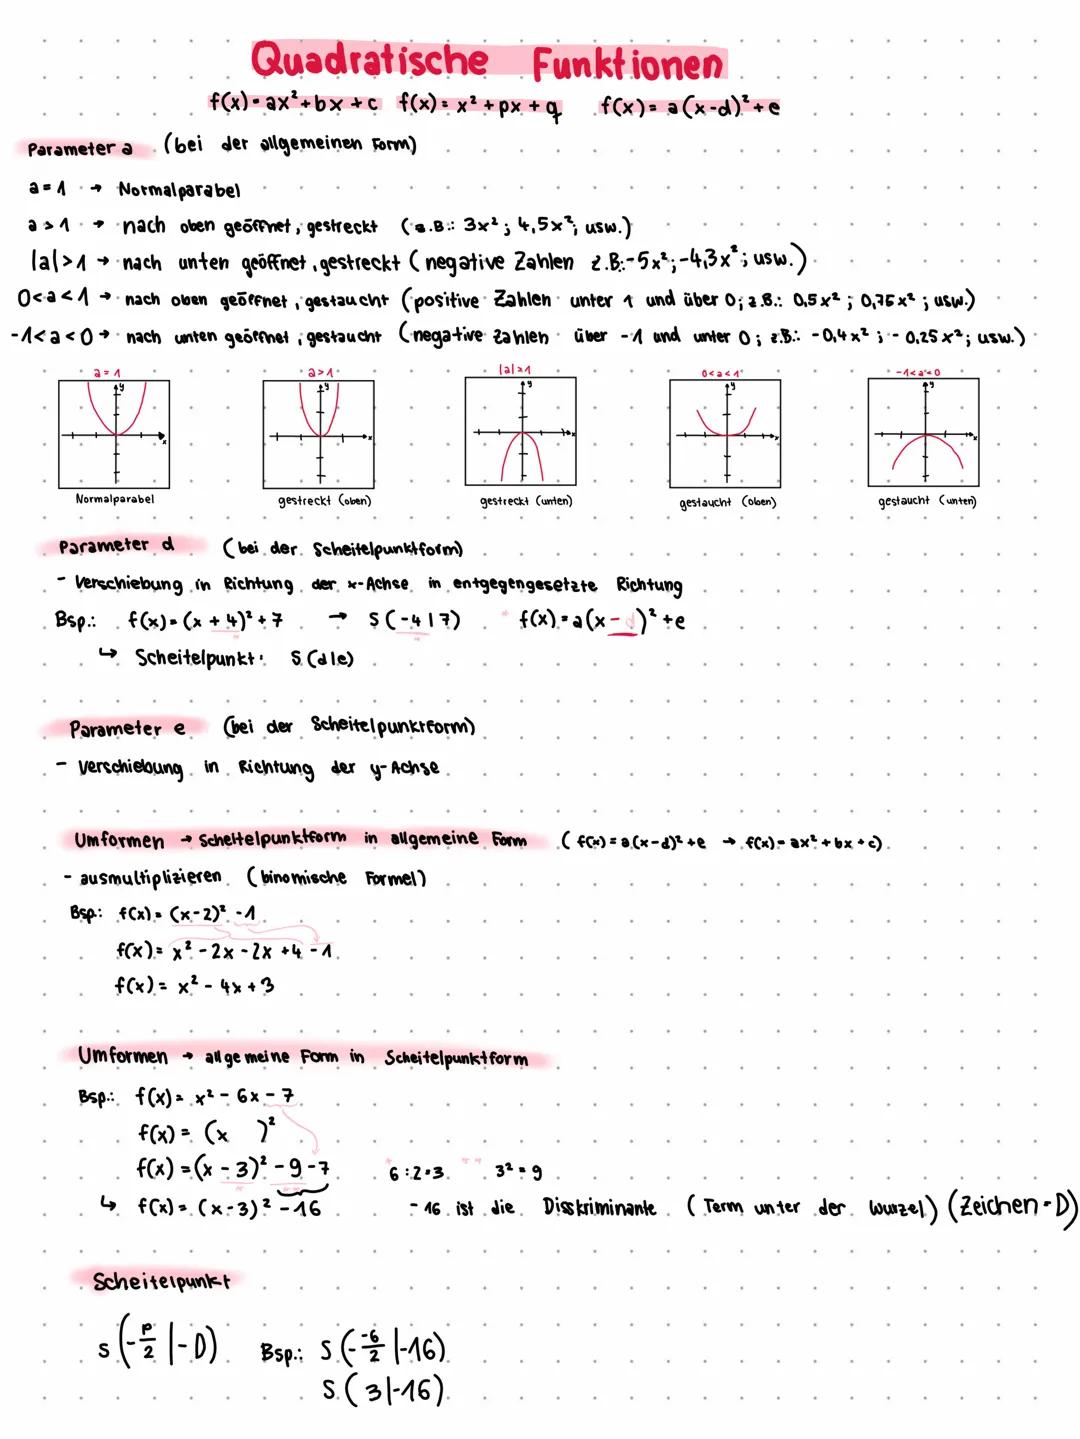 Quadratische Funktionen
f(x) = ax² + bx + c f(x) = x² + px + q f(x) = a(x-d)² + e
Parameter a (bei der allgemeinen Form)
a = 1 → Normalparabel
a > 1 → nach oben geöffnet, gestreckt (z.B.: 3x² ; 4,5x² ; usw.)
|a| > 1 → nach unten geöffnet, gestreckt (negative Zahlen z.B.: -5x² ; -4,3x² ; usw.)
0 < a < 1 → nach oben geöffnet, gestaucht (positive Zahlen unter 1 und über 0 ; z.B.: 0,5x² ; 0,75x² ; usw.)
-1 < a < 0 → nach unten geöffnet, gestaucht (negative Zahlen über -1 und unter 0 ; z.B.: -0,4x² ; -0,25x² ; usw.)
a = 1 a > 1 |a| > 1 0 < a < 1 -1 < a < 0
y y y y y
x x x x x
Normalparabel gestreckt (oben) gestreckt (unten) gestaucht (oben) gestaucht (unten)
Parameter d (bei der Scheitelpunktform)
- Verschiebung in Richtung der x-Achse in entgegengesetzte Richtung
Bsp.: f(x) = (x + 4)² + 7 → S(-4|7) * f(x) = a(x - d)² + e
↳ Scheitelpunkt: S(d|e)
Parameter e (bei der Scheitelpunktform)
- Verschiebung in Richtung der y-Achse
Umformen → Scheitelpunktform in allgemeine Form (f(x) = a(x-d)² + e → f(x) = ax² + bx + c)
- ausmultiplizieren (binomische Formel)
Bsp.: f(x) = (x-2)² - 1
f(x) = x² - 2x - 2x + 4 - 1
f(x) = x² - 4x + 3
Umformen → allgemeine Form in Scheitelpunktform
Bsp.: f(x) = x² - 6x - 7
f(x) = (x )²
f(x) = (x - 3)² - 9 - 7 * 6 : 2 = 3 ** 3² = 9
↳ f(x) = (x-3)² - 16 - 16 ist die Disskriminante (Term unter der Wurzel) (Zeichen = D)
Scheitelpunkt
S(-p/2 | -D) Bsp.: S(-\frac{-6}{2} | -16)
S(3|-16)